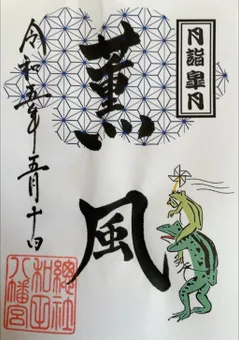 月詣皐月
薫風
令和五年五月十日
總社
和田
八幡宮